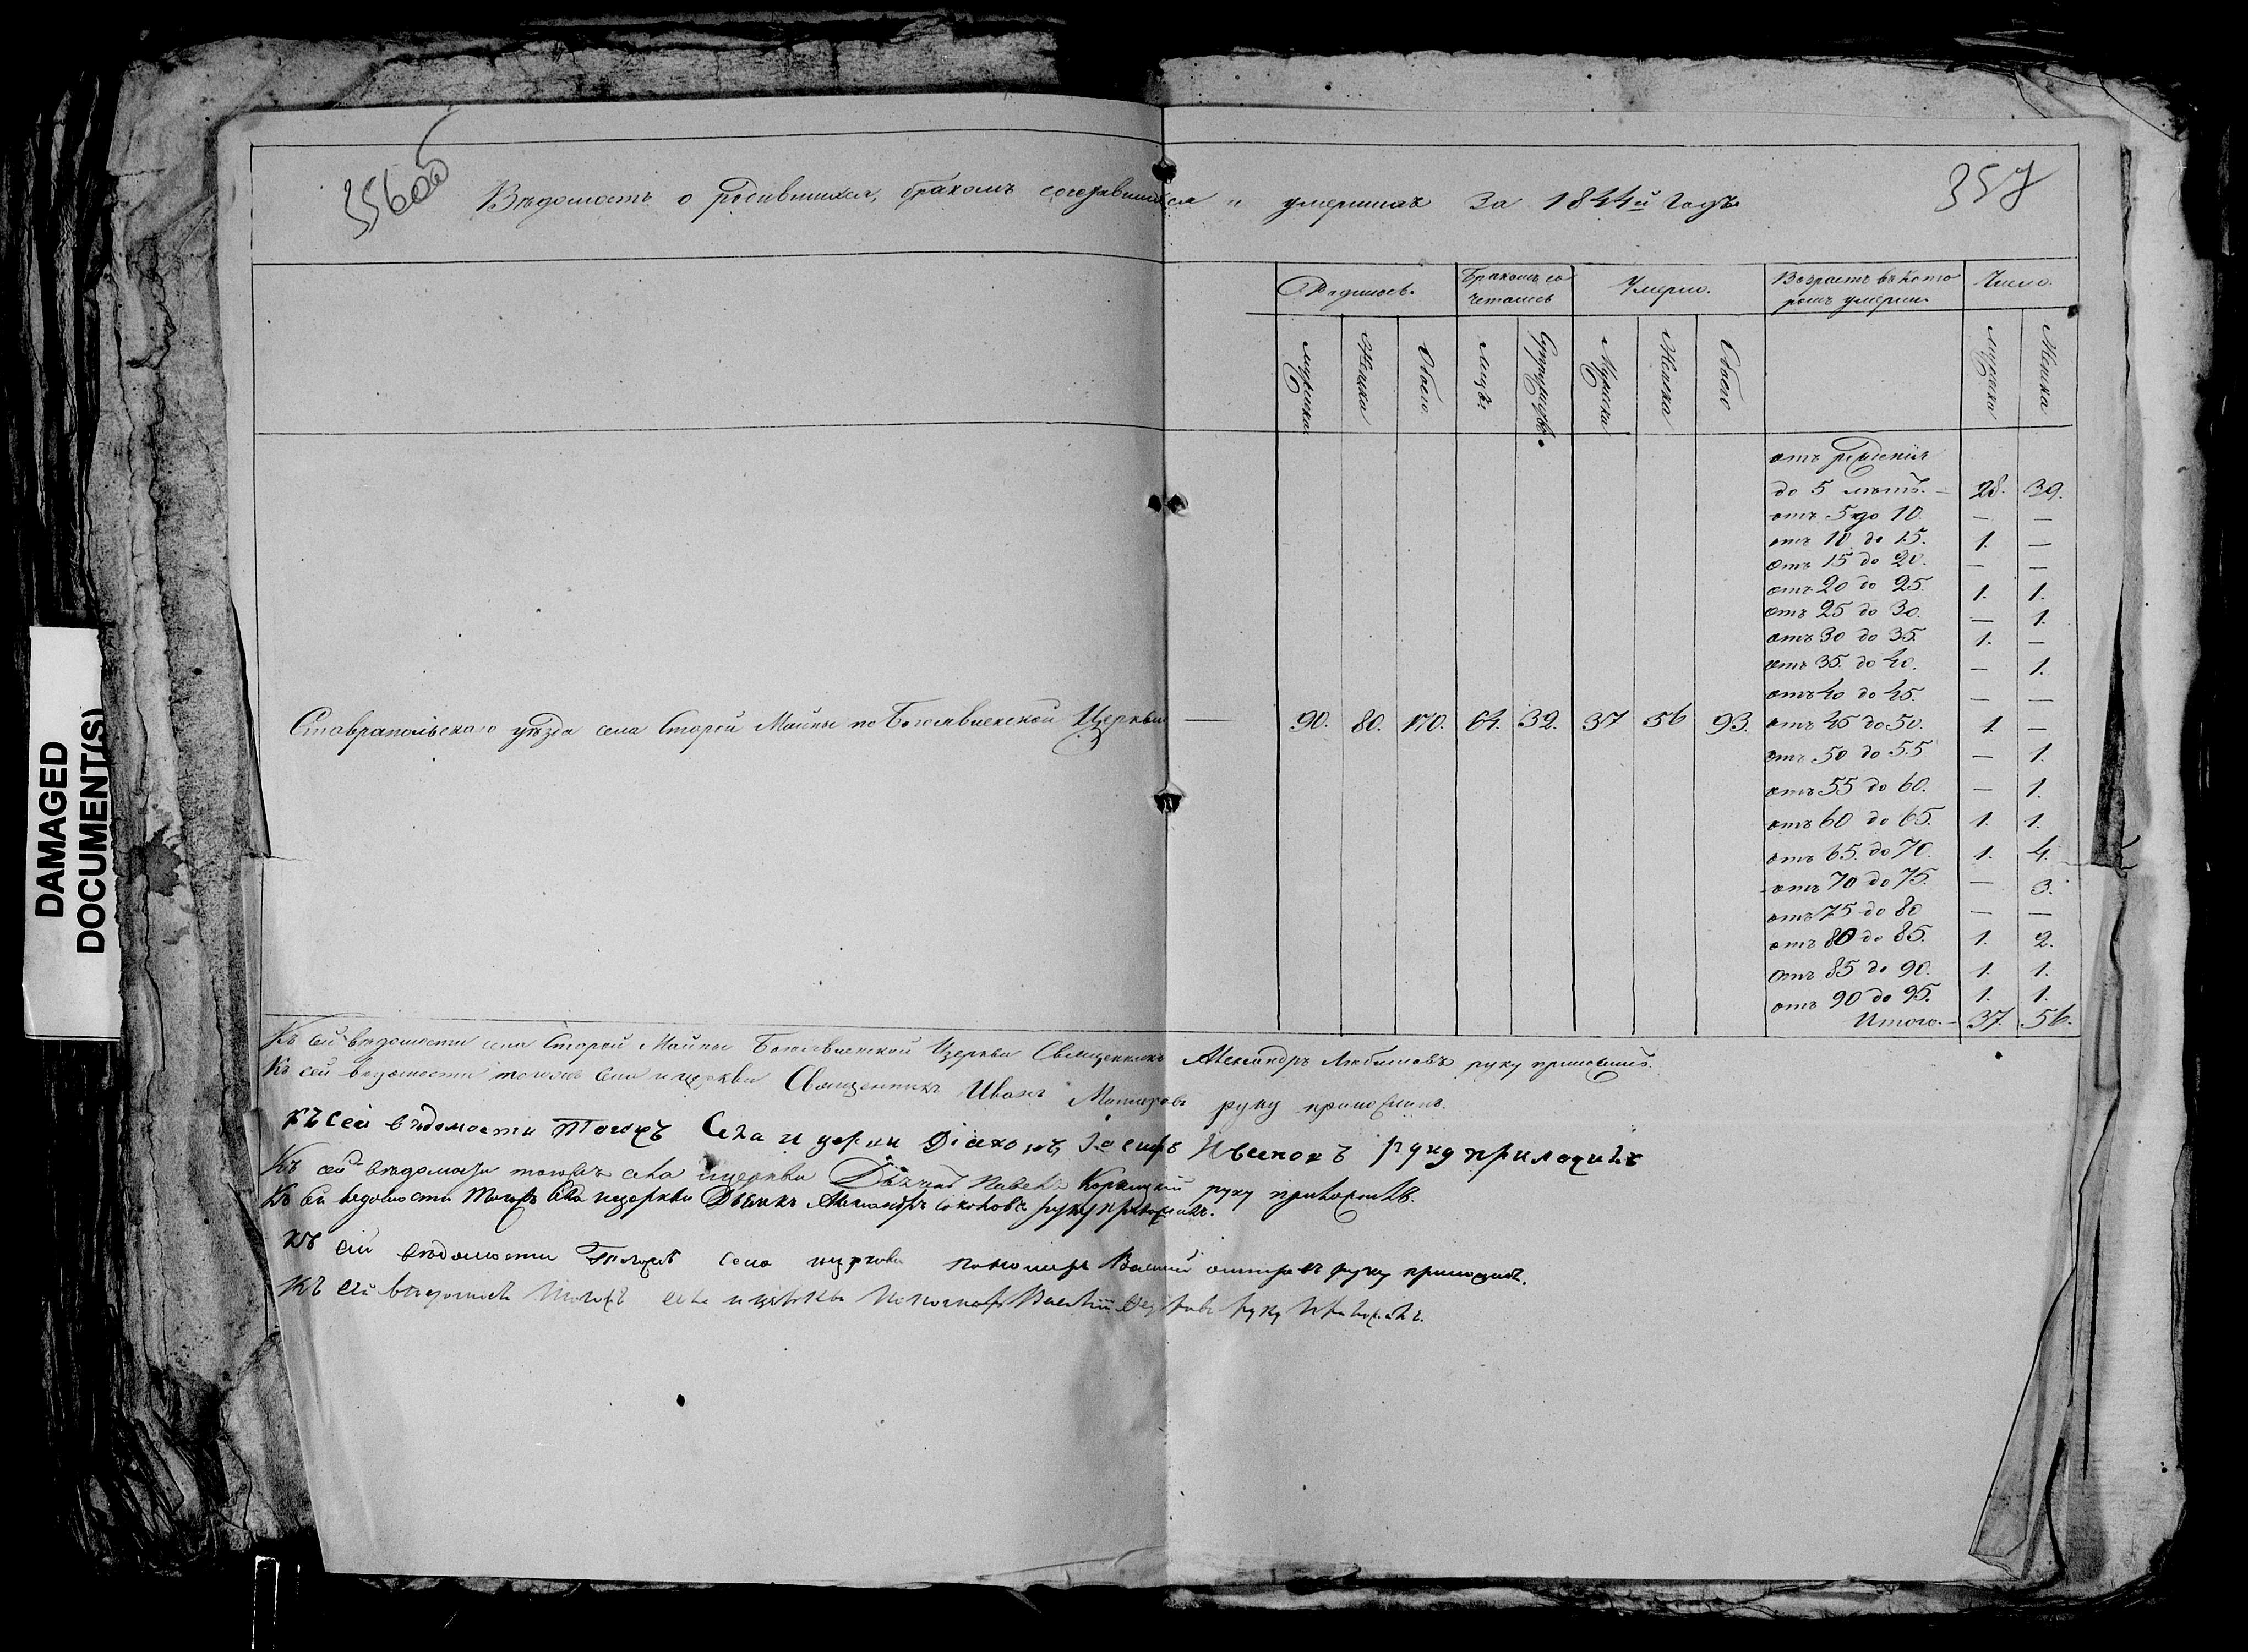 356об
357
Вѣдомость о родившихся, бракомъ сочетавшихся и умершихъ за 1844й годъ
Родилось. Бракомъ со Умерло. Возрастъ въ кото Число.
четалось ромъ умерли.
мужска Женска Обоего. лицъ Супружествъ. Мужска Женска Обоего мужска Женска
отъ рожденія
до 5 лѣтъ. — 28. 39.
отъ 5 до 10. — —
отъ 10 до 15. 1. —
отъ 15 до 20. — —
отъ 20 до 25. 1. 1.
отъ 25 до 30. — 1.
отъ 30 до 35. 1. —
отъ 35 до 40. — 1.
отъ 40 до 45. — —
Ставропольскаго уѣзда села Старой Майны по Богоявленской Церкви — 90. 80. 170. 64. 32. 37 56 93. отъ 45 до 50. 1. —
отъ 50 до 55 — 1.
отъ 55 до 60. — 1.
отъ 60 до 65. 1. 1.
отъ 65. до 70. 1. 4.
отъ 70 до 75. — 3.
отъ 75 до 80 — —
отъ 80 до 85. 1. 2.
отъ 85 до 90. 1. 1.
отъ 90 до 95. 1. 1.
Итого. — 37. 56.
Къ сей вѣдомости села Старой Майны Богоявленской Церкви Священникъ Александръ Любимовъ руку приложилъ.
Къ сей ведомости тогожъ села и церкви Священникъ Иванъ руку приложилъ.
къ сей вѣдомости Тогожъ Села и церкви Діаконъ Іосифъ руку приложилъ
Къ сей вѣдомости тогожъ села и церкви Дьячекъ Павелъ руку приложилъ.
Къ сей ведомости Тогожъ села и церкви Дьячкъ Александръ Соколовъ руку приложилъ.
къ сей вѣдомости Тогожъ села и церкви пономарь Василій руку приложилъ.
Къ сей вѣдомости Тогожъ села и церкви Пономарь Василій руку приложилъ.
DAMAGED
DOCUMENT(S)